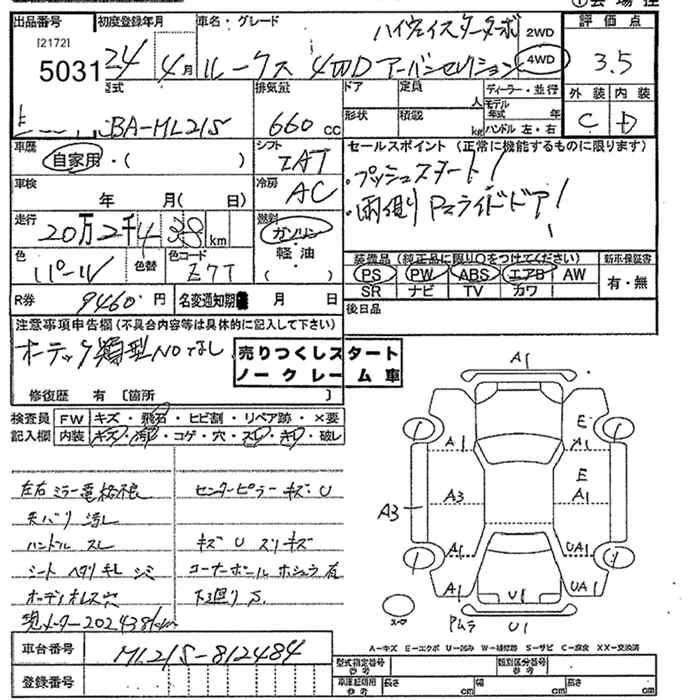 ①会場控
出品番号 初度登録年月 車名・グレード 評価点
[2172]
5031 24 4月 ルークス 4WD アーバンセレクション ハイウェイスターターボ 2WD 4WD 3.5
型式 排気量 ドア 定員 人 ディーラー・並行 外装 内装
CBA-ML21S 660cc 形状 積載 kg モデル年式 年 ハンドル 左・右 C D
車歴 自家用・( ) シフト IAT セールスポイント (正常に機能するものに限ります)
・プッシュスタート!
車検 年 月( 日) 冷房 AC
・両側Pスライドドア!
走行 20万2千438km 燃料 ガソリン・軽油・( )
色 パール 色替 色コード Z7T
装備品 (純正品に限り○をつけてください) 新車保証書
PS PW ABS エアB AW 有・無
SR ナビ TV カワ
R券 9460円 名変通知期限 月 日 後日品
注意事項申告欄 (不具合内容等は具体的に記入して下さい)
オーテック類型NOなし
売りつくしスタート
ノークレーム車
修復歴 有 〔箇所 〕
検査員 FW キズ・飛石・ヒビ割・リペア跡・×要
記入欄 内装 キズ・汚・コゲ・穴・スレ・キレ・破レ
左右ミラー電格不良 センターピラーキズ・U
天バリ 汚レ
ハンドル スレ キズ U スリキズ
シート ヘタリ キレ シミ コーナーポール ホシュウ有
オーディオレス穴 下廻り S.
現メーター202438km
A1
A1 E A1
A3 A3 E A1
A1 UA1
A1 U1 UA1
スーア PムラU1
A-キズ E-エクボ U-凹み W-補修跡 S-サビ C-腐食 XX-交換済
車台番号 ML21S-812484
登録番号
型式指定番号 参考 類別区分番号 参考
車庫証明用 参考 長さ cm 幅 cm 高さ cm